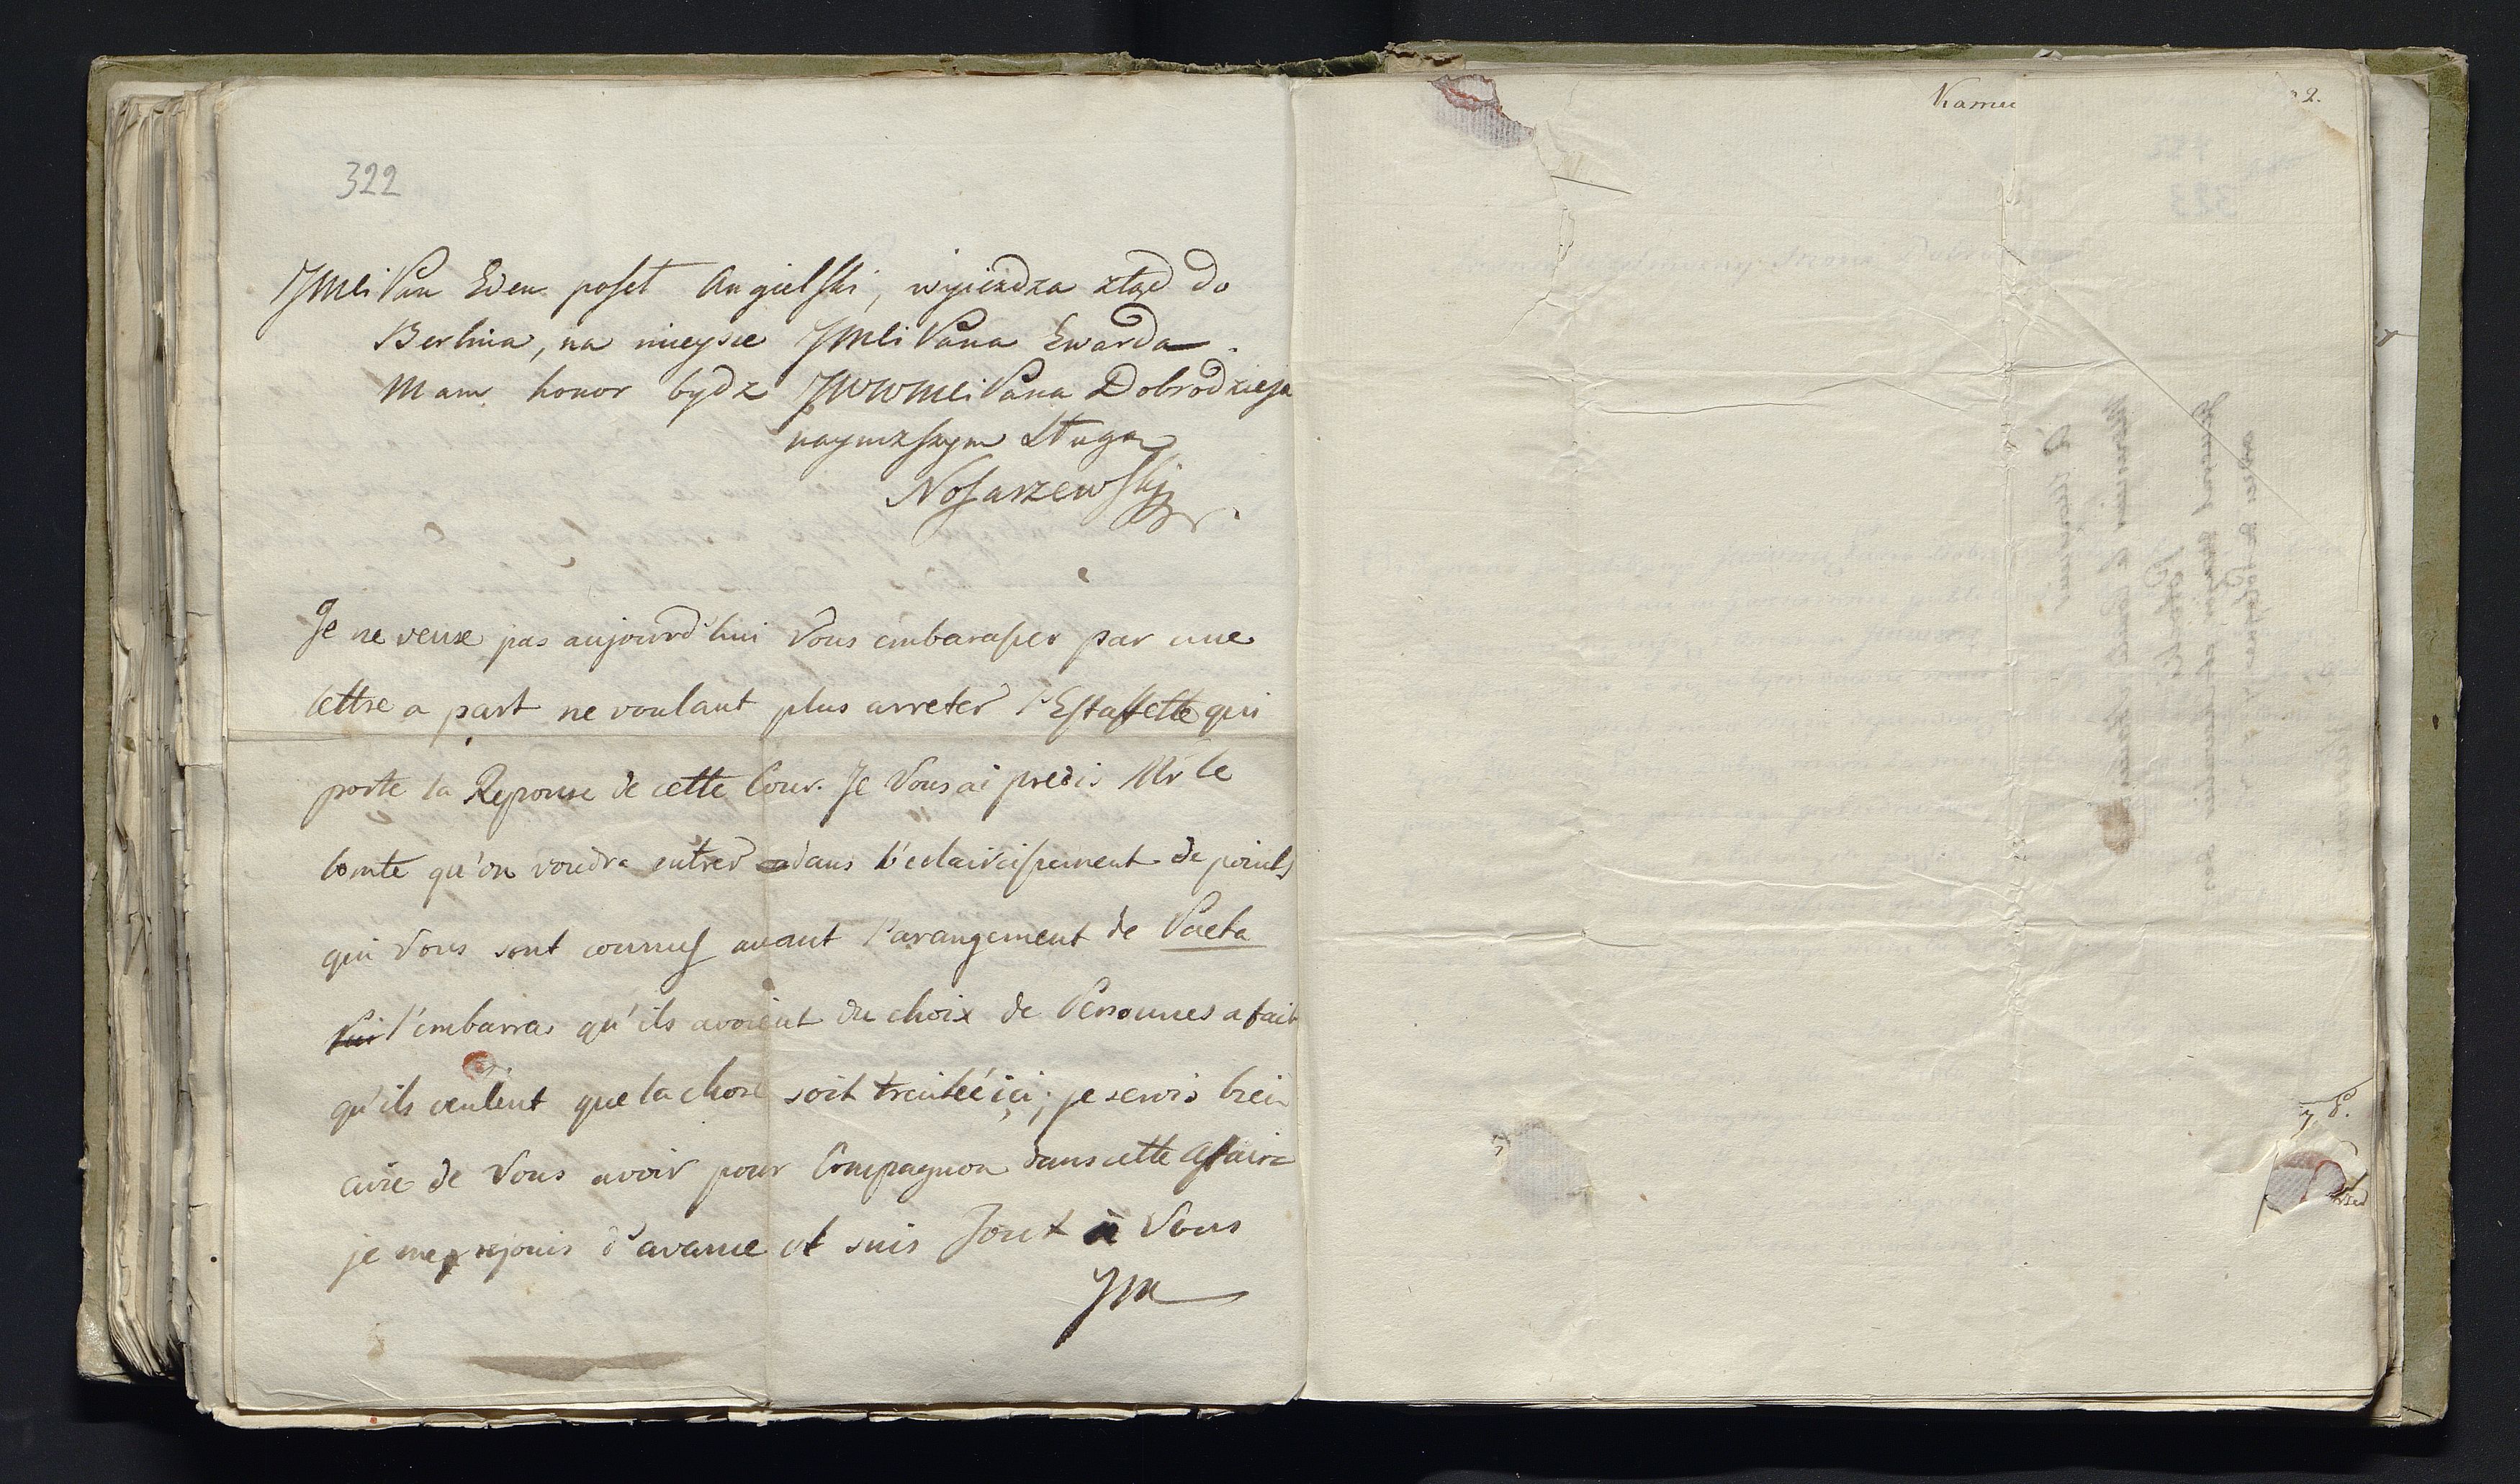 322
JMci Pan Eden poseł Angielski, wyieżdza ztąd do
Berlina, na mieysce JMci Pana Ewarda.
Mam honor bydz JWWMci Pana Dobrodzieja
nayniższym Sługą
Nosarzewski
Je ne veuxe pas aujourd'hui Vous embarasser par une
lettre a part ne voulant plus arreter l'Estaffette qui
porte la Reponse de cette Cour. Je Vous ai predis Mr le
Comte qu'on voudra entrer dans l'eclaircissement de points
qui Vous sont connus avant l'arangement de Pacta
l'embarras qu'ils avoient du choix de Personnes a fait
qu'ils veulent que la chose soit traitée ici; je serois bien
aise de Vous avoir pour Compagnon dans cette affaire
je me rejouis d'avance et suis Tout à Vous
JM
2.